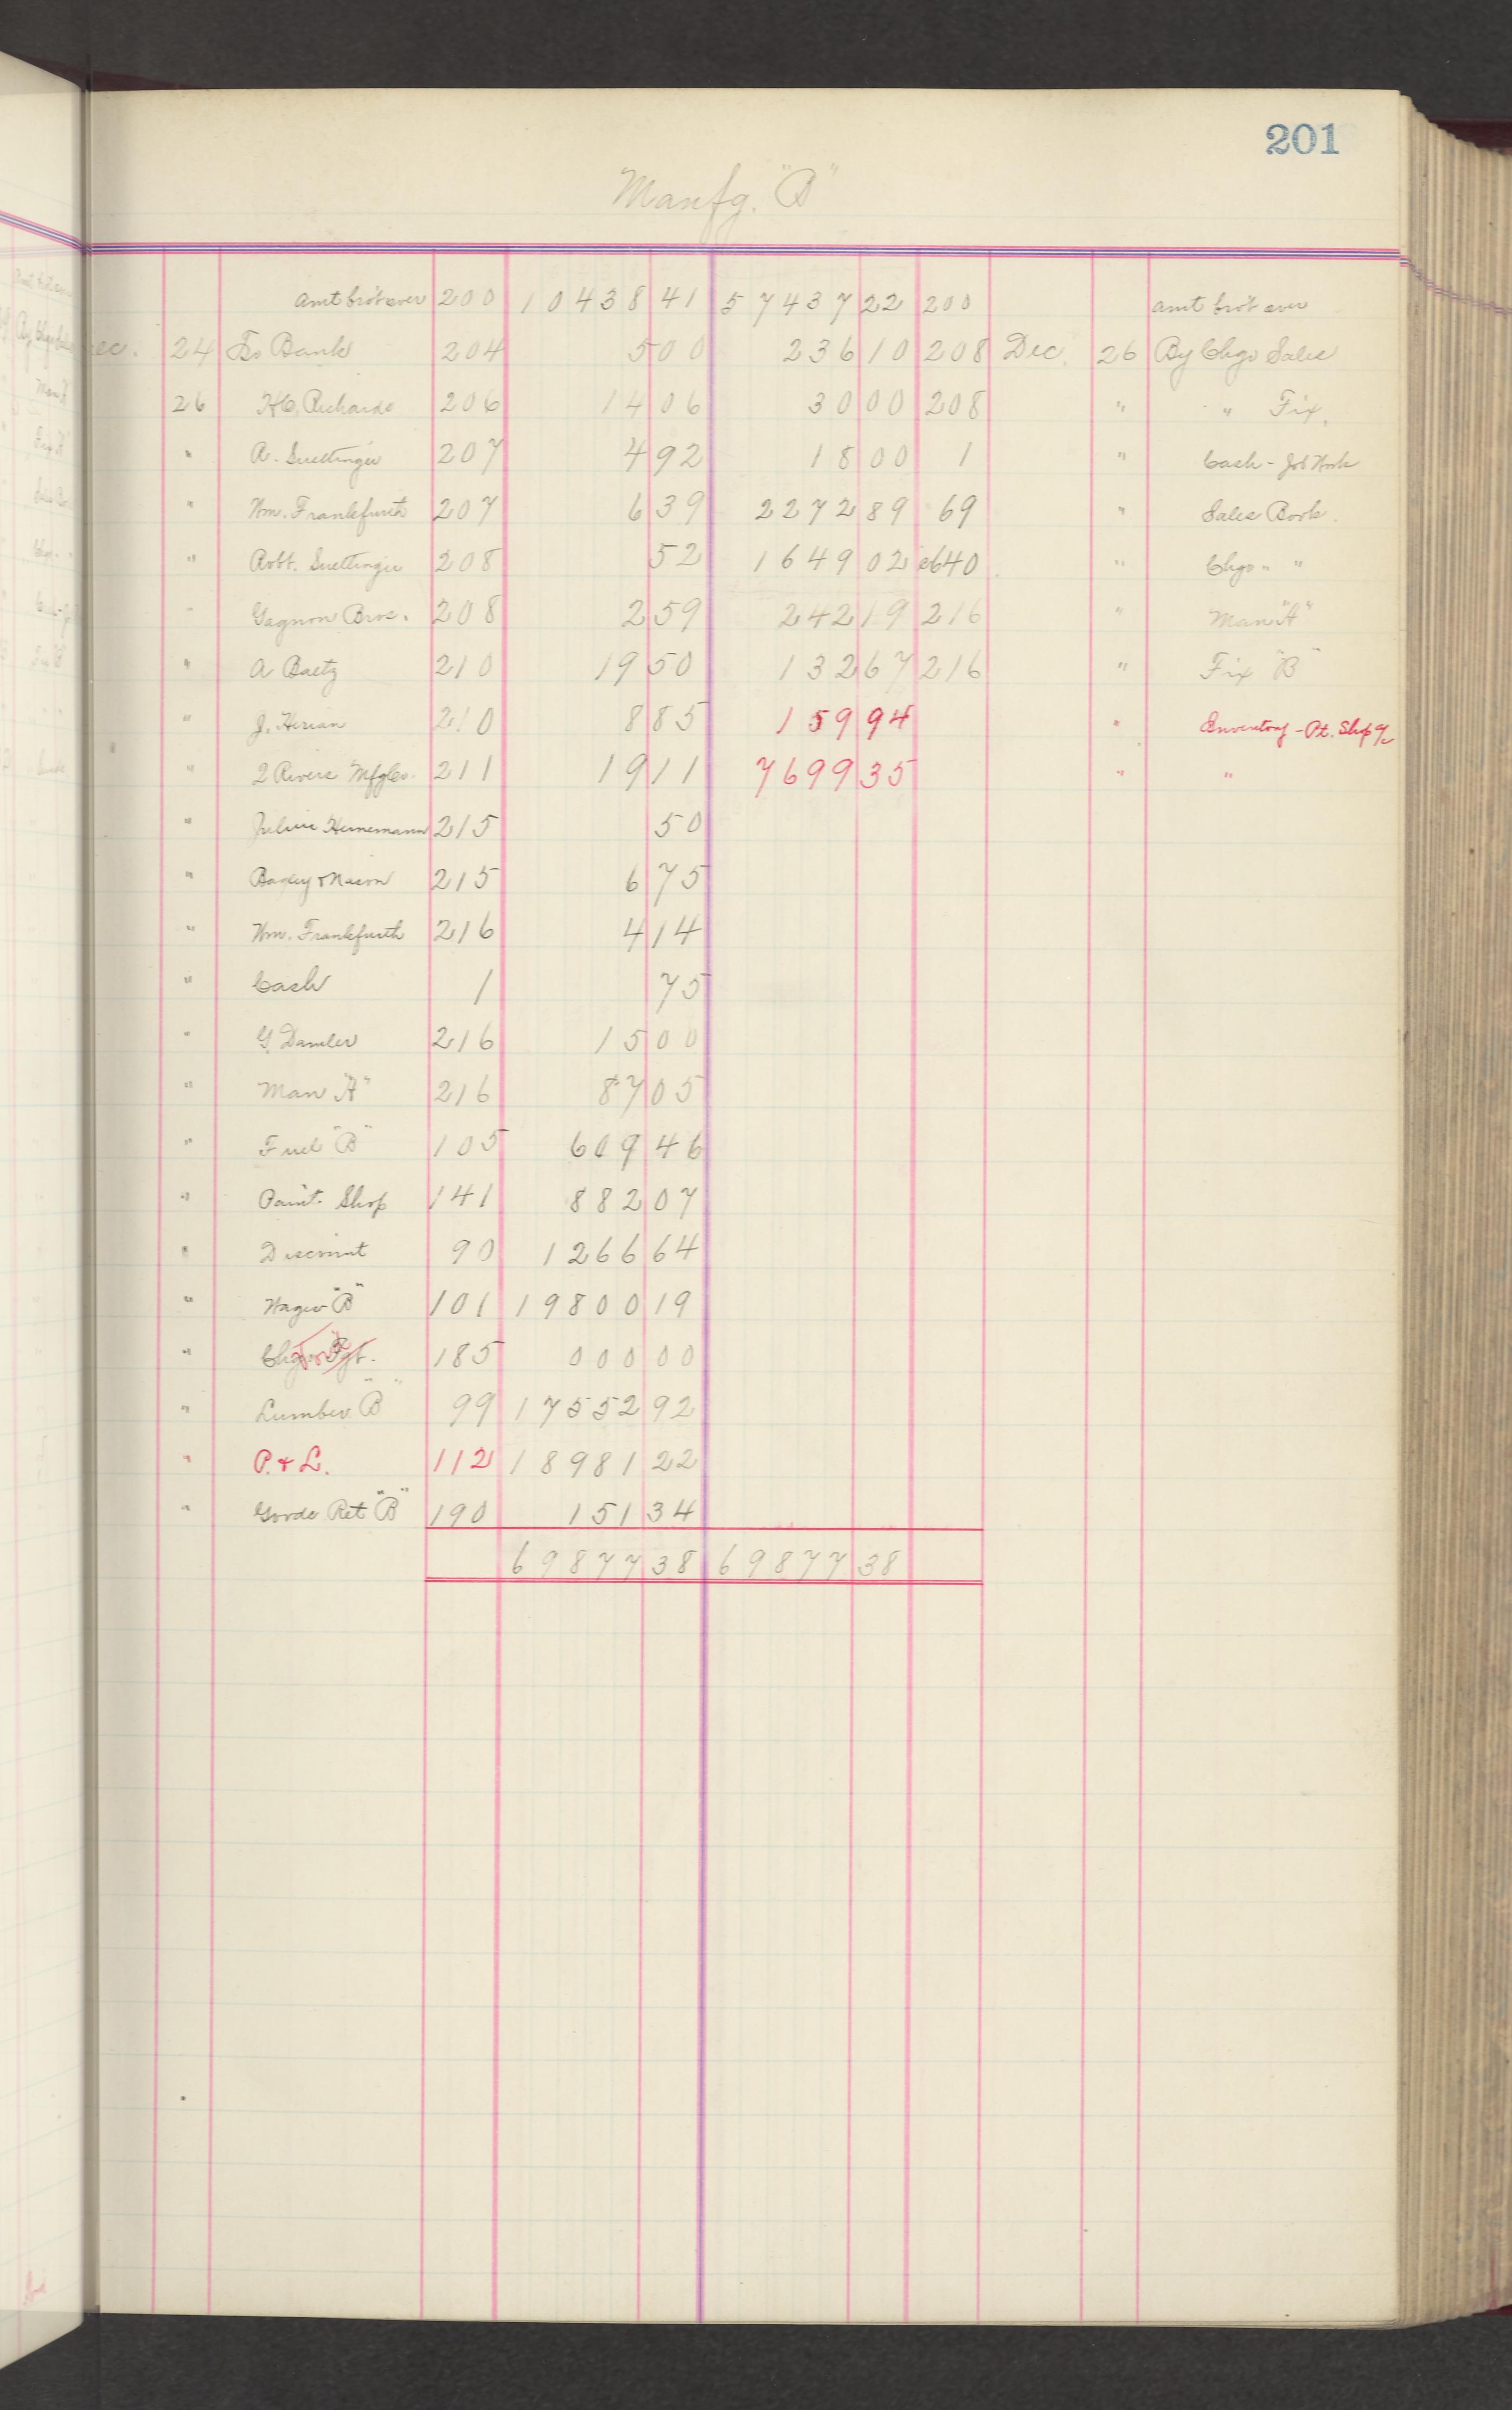 201
Manfg. "B"
amt brot over 200 10438 41 57437 22 200 amt brot over
ec. 24 To Bank 204 5 00 236 10 208 Dec. 26 By Chgo Sales
26 H.C. Richards 206 14 06 30 00 208 " " Fix.
" R. Suettinger 207 4 92 18 00 1 " Cash - Job Work
" Wm. Frankfurth 207 6 39 2272 89 69 " Sales Book.
" Robt. Suettinger 208 52 1649 02 640 " Chgo " "
" Gagnon Bros. 208 2 59 242 19 216 " Man "A"
" A Baetz 210 19 50 132 67 216 " Fix "B"
" J. Herian 210 8 85 159 94 " Inventory - Pt. Shop a/c
" 2 Rivers Mfg Co. 211 19 11 7699 35 " "
" Julius Heinemann 215 50
" Baxley & Mason 215 6 75
" Wm. Frankfurth 216 4 14
" Cash 1 75
" G. Damler 216 15 00
" Man "A" 216 87 05
" Fuel "B" 105 609 46
" Paint Shop 141 882 07
" Discount 90 1266 64
" Wages "B" 101 19800 19
" Chgo Fgt. 185 000 00
" Lumber "B" 99 17552 92
" P. & L. 112 18981 22
" Goods Ret "B" 190 151 34
69877 38 69877 38